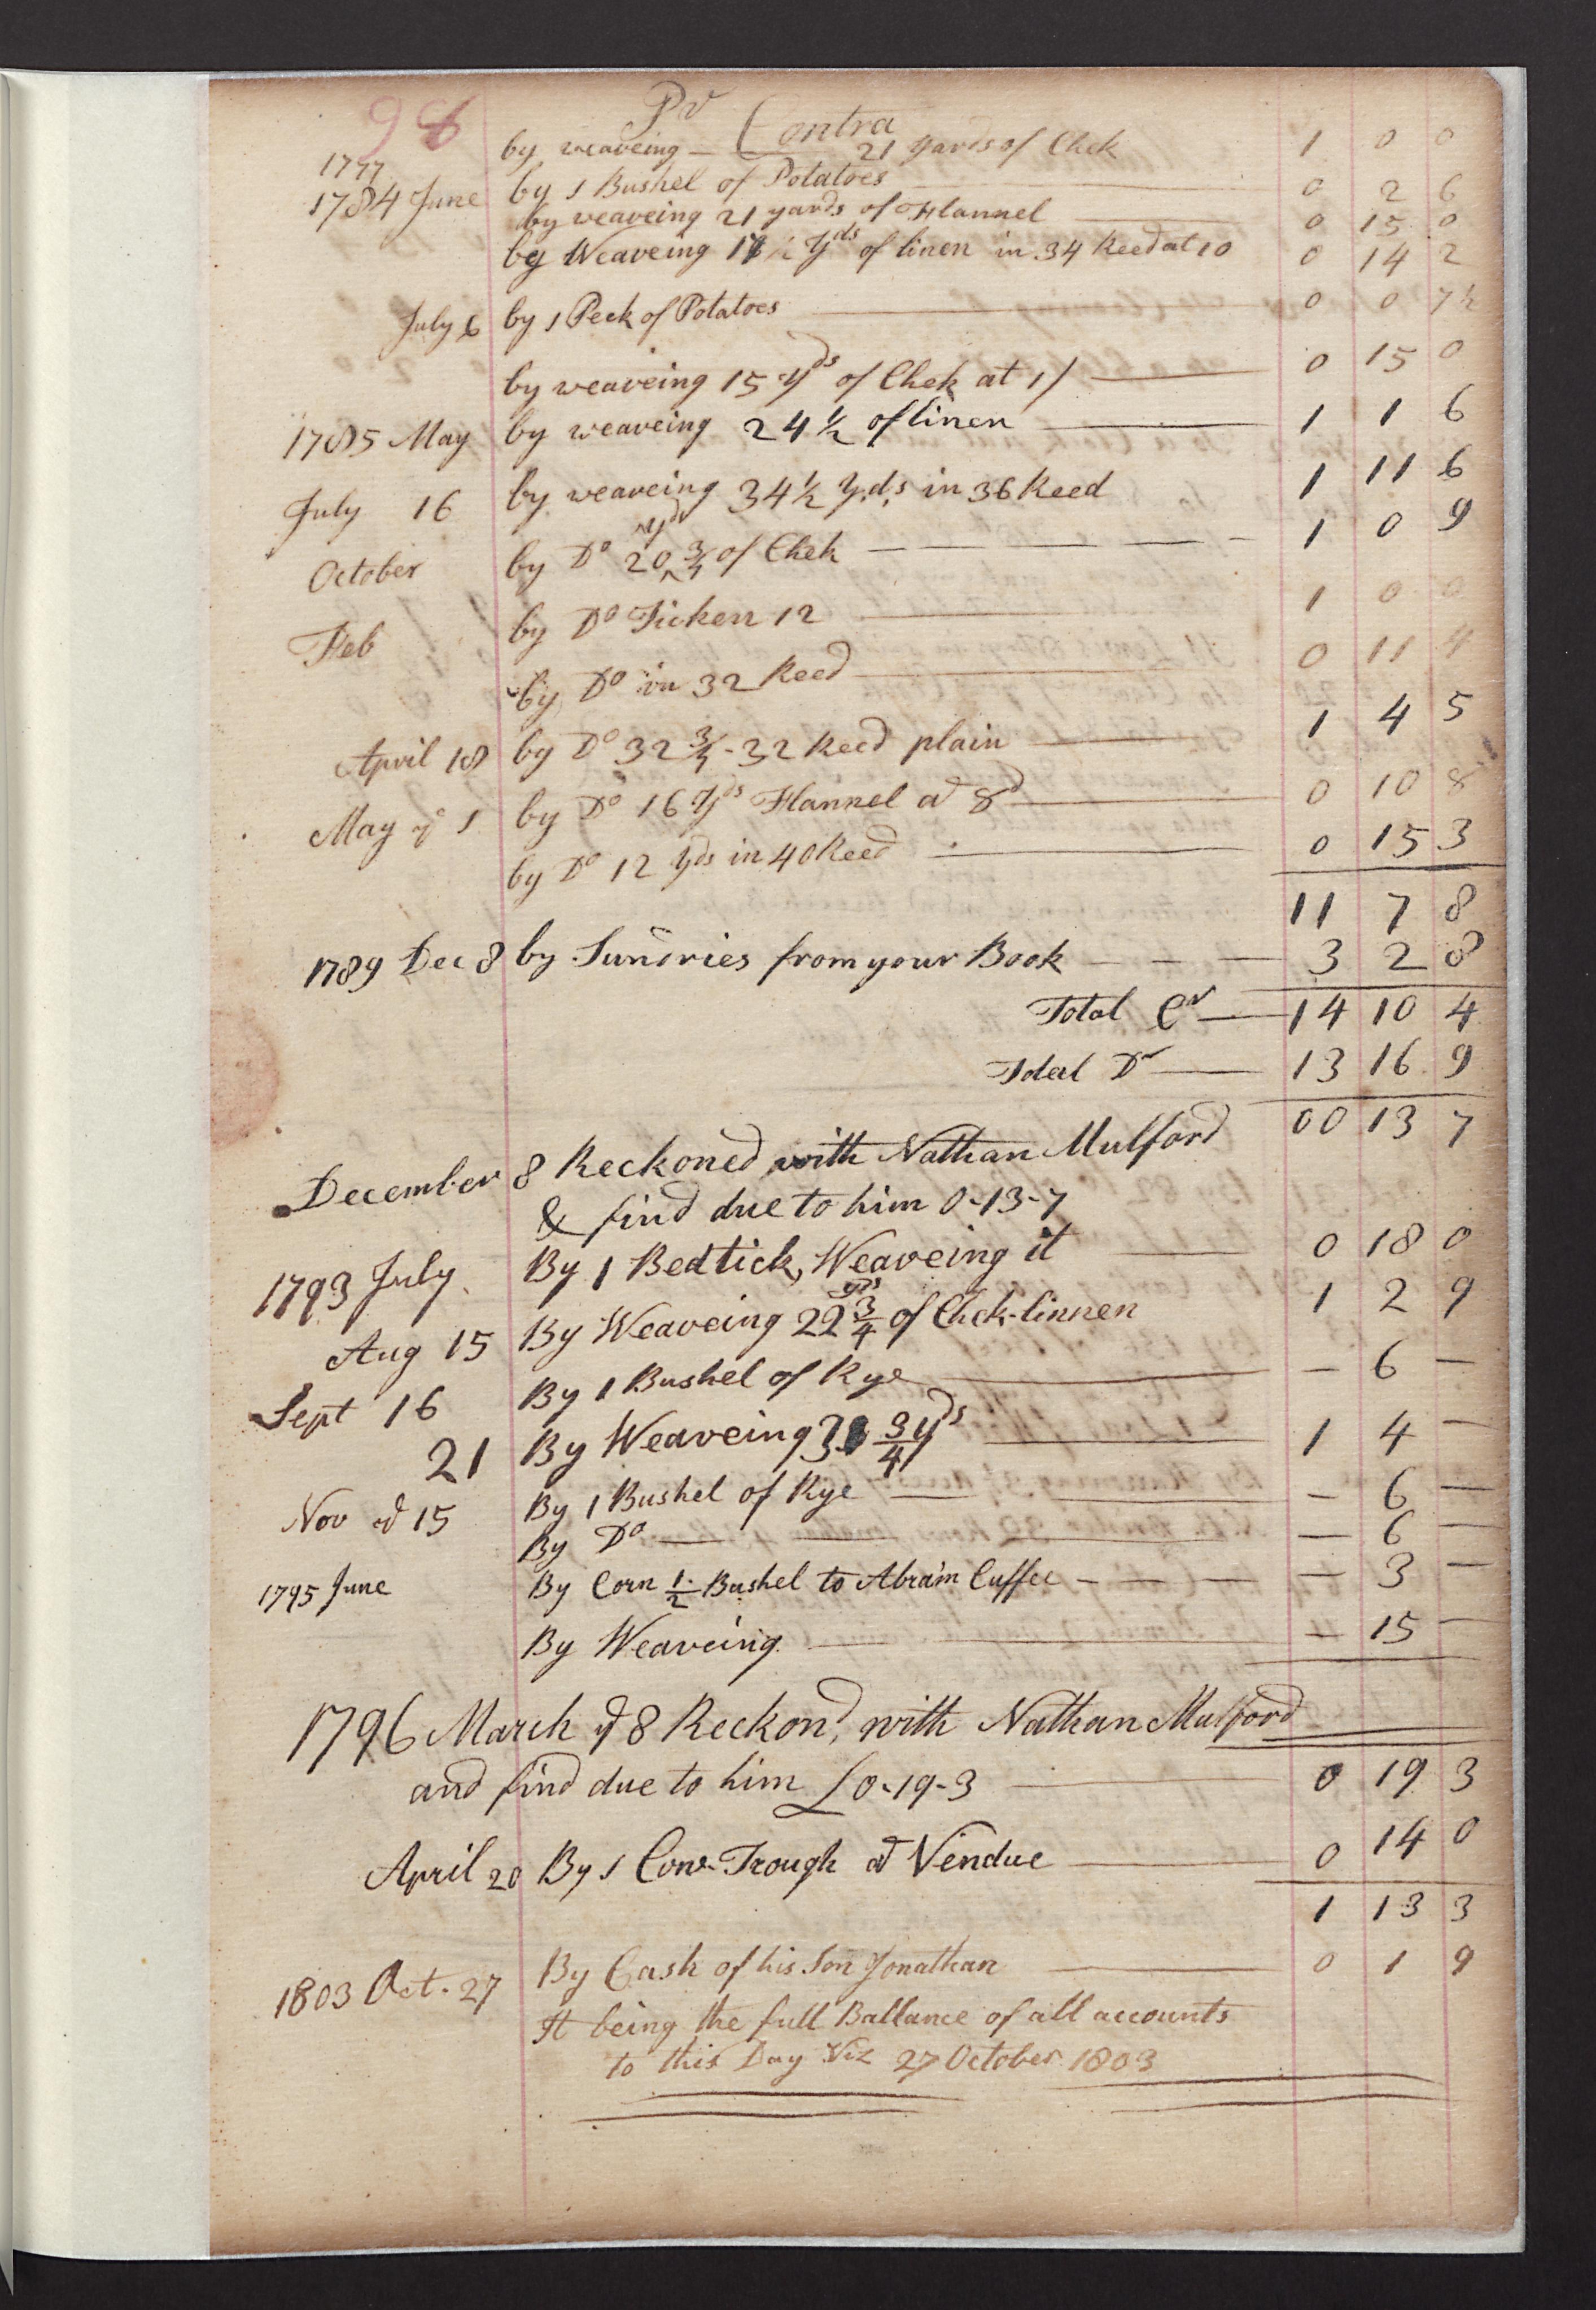 98
Pr Contra
1777 by weaveing — 21 yards of Chek 1 0 0
1784 June by 1 Bushel of Potatoes 0 2 6
by weaveing 21 yards of Flannel 0 15 0
by Weaveing 17 ½ Yds of linen in 34 Reed at 10 0 14 2
July 6 by 1 Peck of Potatoes 0 0 7½
by weaveing 15 yds of Chek at 1/ 0 15 0
1785 May by weaveing 24 ½ of linen 1 1 6
July 16 by weaveing 34 ½ Yds in 36 Reed 1 11 6
October by Do 20 ¾ yd of Chek 1 0 9
Feb by Do Ticken 12 1 0 0
by Do in 32 Reed 0 11 4
April 18 by Do 32 ¾ - 32 Reed plain 1 4 5
May ye 1 by Do 16 Yds Flannel at 8d 0 10 8
by Do 12 Yds in 40 Reed 0 15 3
11 7 8
1789 Dec 8 by Sundries from your Book 3 2 8
Total Cr 14 10 4
Totel Dr 13 16 9
00 13 7
December 8 Reckoned with Nathan Mulford
& find due to him 0-13-7
1793 July By 1 Bedtick, Weaveing it 0 18 0
Aug 15 By Weaveing 22 ¾ yds of Chek-linnen 1 2 9
Sept 16 By 1 Bushel of Rye — 6 —
21 By Weaveing 31 ¾ yds 1 4 —
Nov ye 15 By 1 Bushel of Rye — 6 —
By Do — 6 —
1795 June By Corn ½ Bushel to Abra'm Cuffee — 3 —
By Weaveing — 15 —
1796 March ye 8 Reckond, with Nathan Mulford
and find due to him £0-19-3 0 19 3
April 20 By 1 Cow-Trough at Vendue 0 14 0
1 13 3
1803 Oct. 27 By Cash of his Son Jonathan 0 1 9
It being the full Ballance of all accounts
to this Day Viz 27 October 1803